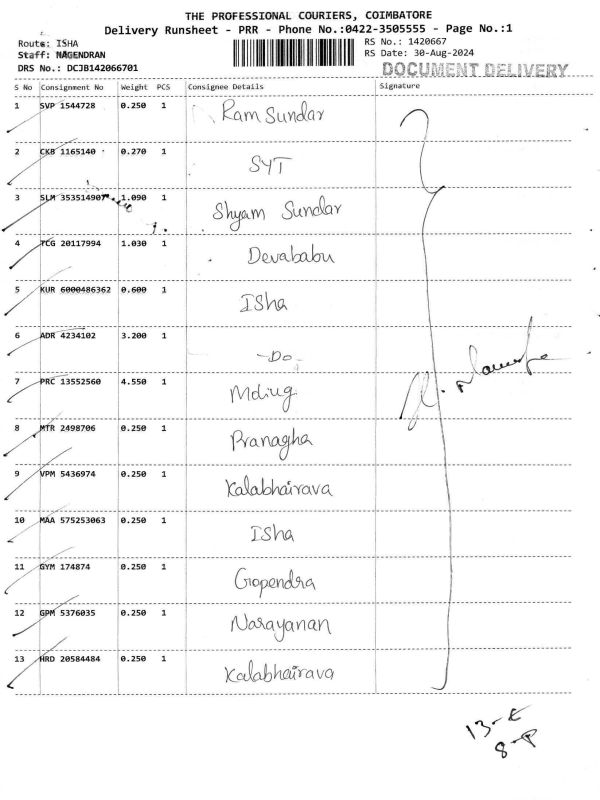 THE PROFESSIONAL COURIERS, COIMBATORE
Delivery Runsheet - PRR - Phone No.:0422-3505555 - Page No.:1
Route: ISHA
Staff: NAGENDRAN
DRS No.: DCJB142066701
RS No.: 1420667
RS Date: 30-Aug-2024
DOCUMENT DELIVERY
S No Consignment No Weight PCS Consignee Details Signature
1 SVP 1544728 0.250 1 Ram Sundar
2 CKB 1165140 0.270 1 SYT
3 SLM 353514907 1.090 1 Shyam Sundar
4 TCG 20117994 1.030 1 Devababu
5 KUR 6000486362 0.600 1 ISha
6 ADR 4234102 3.200 1 -Do-
7 PRC 13552560 4.550 1
8 MTR 2498706 0.250 1 Pranagha
9 VPM 5436974 0.250 1 Kalabhairava
10 MAA 575253063 0.250 1 ISha
11 GYM 174874 0.250 1 Gopendra
12 GPM 5376035 0.250 1 Narayanan
13 HRD 20584484 0.250 1 Kalabhairava
13-E
8-P